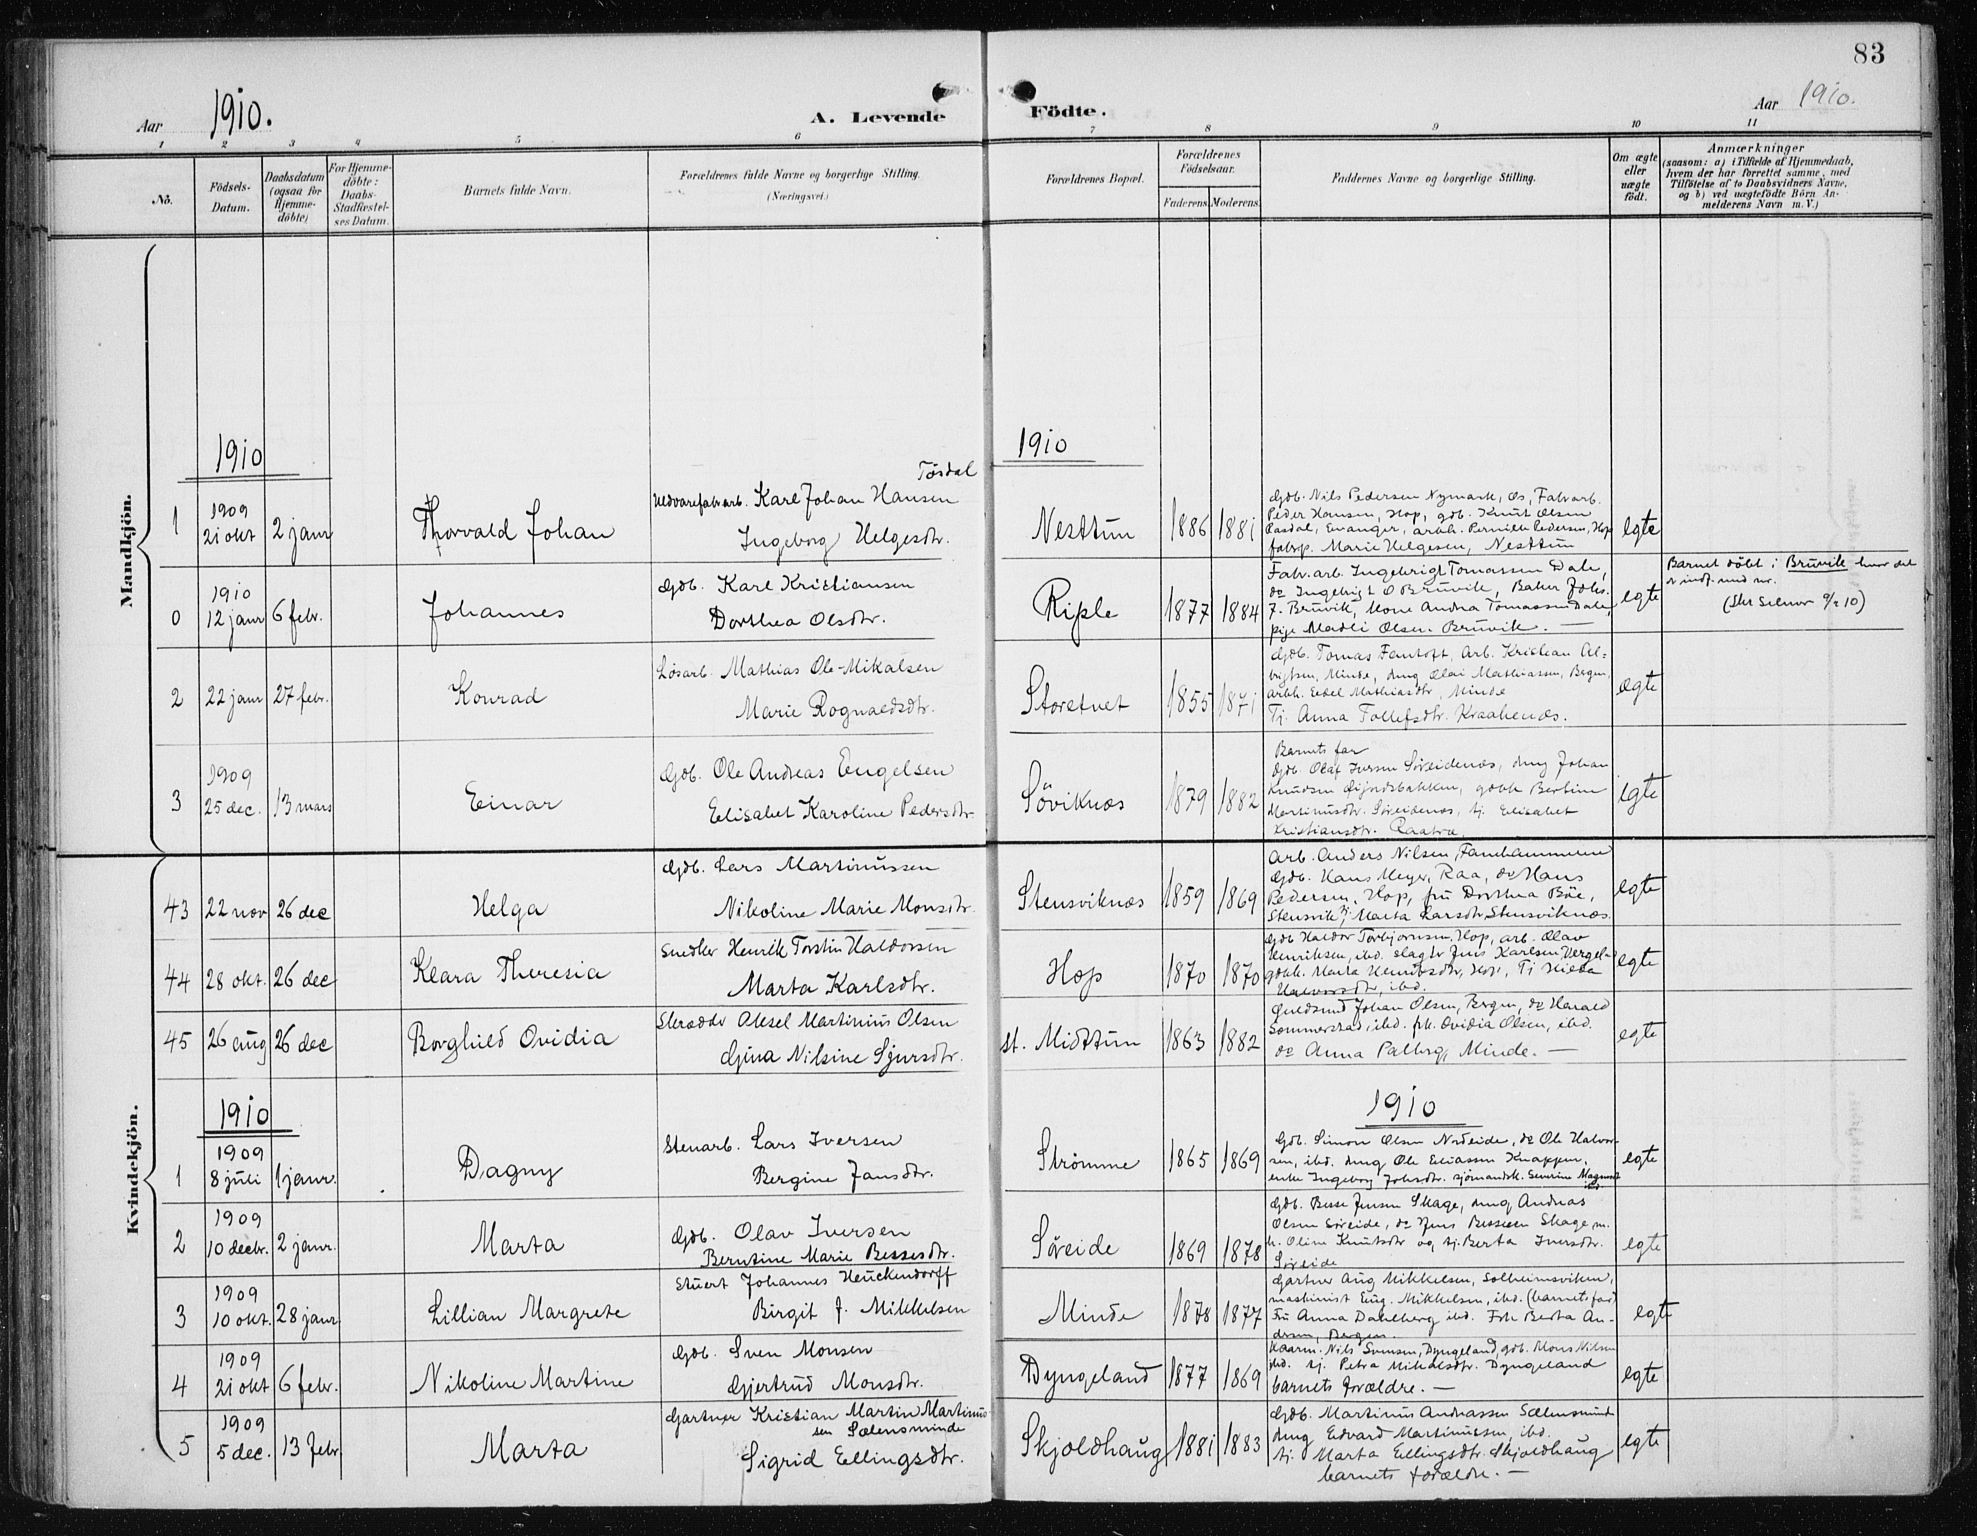 83
Aar 1910. A. Levende Födte. Aar 1910.
1 2 3 4 5 6 7 8 9 10 11
No.
Födsels-
Datum.
Daabsdatum
(ogsaa for
Hjemme-
döbte)
For Hjemme-
döbte:
Daabs-
Stadfæstel-
ses Datum.
Barnets fulde Navn.
Forældrenes fulde Navne og borgerlige Stilling.
(Næringsvei.)
Forældrenes Bopæl.
Forældrenes
Födselsaar.
Faderens. Moderens.
Faddernes Navne og borgerlige Stilling.
Om ægte
eller
uægte
födt.
Anmærkninger
(saasom: a) i Tilfælde af Hjemmedaab,
hvem der har forrettet samme, med
Tilföielse af to Daabsvidners Navne,
og b) ved uægtefödte Börn An-
melderens Navn m. V.)
Mandkjön.
1910
1910
Tösdal
1
1909
21 okt
2 janr
Thorvald Johan
Uldvarefabrarb. Karl Johan Hansen
Ingeborg Helgesdtr.
Nesttun
1886
1881
Gdb. Nils Pedersen Nymark, Os, Fabrarb.
Peder Hansen, Hop, gdb. Knut Olsen
Aasdal, Evanger, arbh. Pernille Pedersen, Hop
fabrp. Marie Helgesen, Nesttun
egte
0
1910
12 janr
6 febr.
Johannes
Gdb. Karl Kristiansen
Dorthea Olsdtr.
Riple
1877
1884
Fabr.arb. Ingebrigt Tomassen Dale,
do Ingebrigt O Bruvik, Baker Johs.
J. Bruvik, Kone Andra Tomassen Dale,
pige Madli Olsen Bruvik. —
egte
Barnet döbt i Bruvik hvor det
er indf. und nr.
2
22 janr
27 febr.
Konrad
Løsarb. Mathias Ole-Mikalsen
Marie Rognaldsdtr.
Storetvet
1855
1871
Gdb. Tomas Fantoft, Arb. Kristian Al-
brigtsen, Minde, ung Olai Mathiassen, Bergen,
arbh. Eidel Mathiasdtr, Minde
Tj. Anna Tollefsdtr. Kraakenæs.
ægte
3
1909
25 dec.
13 mars
Einar
Gdb. Ole Andreas Engelsen
Elisabet Karoline Pedersdtr.
Söviknæs
1879
1882
Barnets far
Gdb. Olaf Iversen Søreidenæs, ung Johan
Knudsen, gdbk Bertine
Martinusdtr. Søreidenæs, tj. Elisabet
Kristiansdtr. Raatræ
egte
Kvindekjön.
43
22 nov
26 dec
Helga
Gdb. Lars Martinussen
Nikoline Marie Monsdtr.
Stensviknæs
1859
1869
Arb. Anders Nilsen, Fanehammeren
Gdb. Hans Meyer, Raa, do Hans
Pedersen, Hop, fru Dorthea Böe,
Stensvik Tj. Marta Larsdtr. Stensviknæs.
egte
44
28 okt.
26 dec
Klara Theresia
Snedker Henrik Torstin Haldorsen
Marta Karlsdtr.
Hop
1870
1870
Gdb Haldor Torbjornsen, Hop, arb. Olav
Henriksen, ibd. slagtr Jens Karlsen,
gdbk. Marta Henriksdtr, Hop, Tj Hilda
Halvorsdtr, ibd.
egte
45
26 aug
26 dec
Borghild Ovidia
Skrædder Aksel Martinius Olsen
Gina Nilsine Sjursdtr.
st. Midttun
1863
1882
Guldsmed Johan Olsen, Bergen, do Harald
Sommerstad, ibd. frk. Ovidia Olsen, ibd.
do Anna Palberg, Minde. —
egte
1910
1910
1
1909
8 juli
1 janr.
Dagny
Stenarb. Lars Iversen
Bergine Jansdtr.
Strømme
1865
1869
Gdb. Simon Olsen Nordeide, do Ole Halvor-
sen, ibd. ung Ole Eliassen Knappen,
enke Ingeborg Johsdtr. sjömandsk. Severine Magnus
ibd.
egte
2
1909
10 decbr.
2 janr.
Marta
Gdb. Olav Iversen
Berntine Marie Bessesdtr.
Søreide
1869
1878
Gdb. Besse Jensen Skage, ung Andreas
Olsen Søreide, do Jens Bessesen Skage, m.
k. Oline Knutsdtr og tj. Berta Iversdtr.
Søreide
egte
3
1909
10 okt.
28 janr
Lillian Margrete
Stuert Johannes Heuckendorff
Birgit J. Mikkelsen
Minde
1878
1877
Gartner Aug Mikkelsen, Solheimsviken,
maskinist Eug. Mikkelsen, ibd. (barnets far)
Fru Anna Dahlberg ibd. Frk Berta An-
dersen, Bergen.
egte
4
1909
21 okt
6 febr.
Nikoline Martine
Gdb. Sven Monsen
Gjertrud Monsdtr.
Dyngeland
1877
1869
Kaarm. Nils Svensen, Dyngeland, gdb. Mons Nilsen
ibd. tj. Petra Mikalsdtr. Dyngeland
barnets forældre. —
egte
5
1909
5 dec.
13 febr
Marta
Gartner Kristian Martin Martinus
sen Sælensminde
Sigrid Ellingsdtr.
Skjoldhaug
1881
1883
Gdb. Martinus Andreassen Sælensmind
ung Edvard Martinussen, ibd.
tj. Marta Ellingsdtr. Skjoldhaug
barnets forældre. —
egte